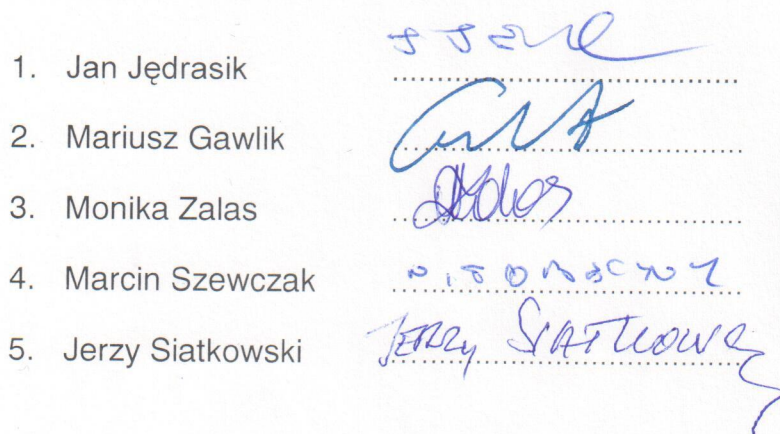 1. Jan Jędrasik ........................................
2. Mariusz Gawlik ........................................
3. Monika Zalas ........................................
4. Marcin Szewczak ........................................
5. Jerzy Siatkowski JERZY SIATKOWSKI